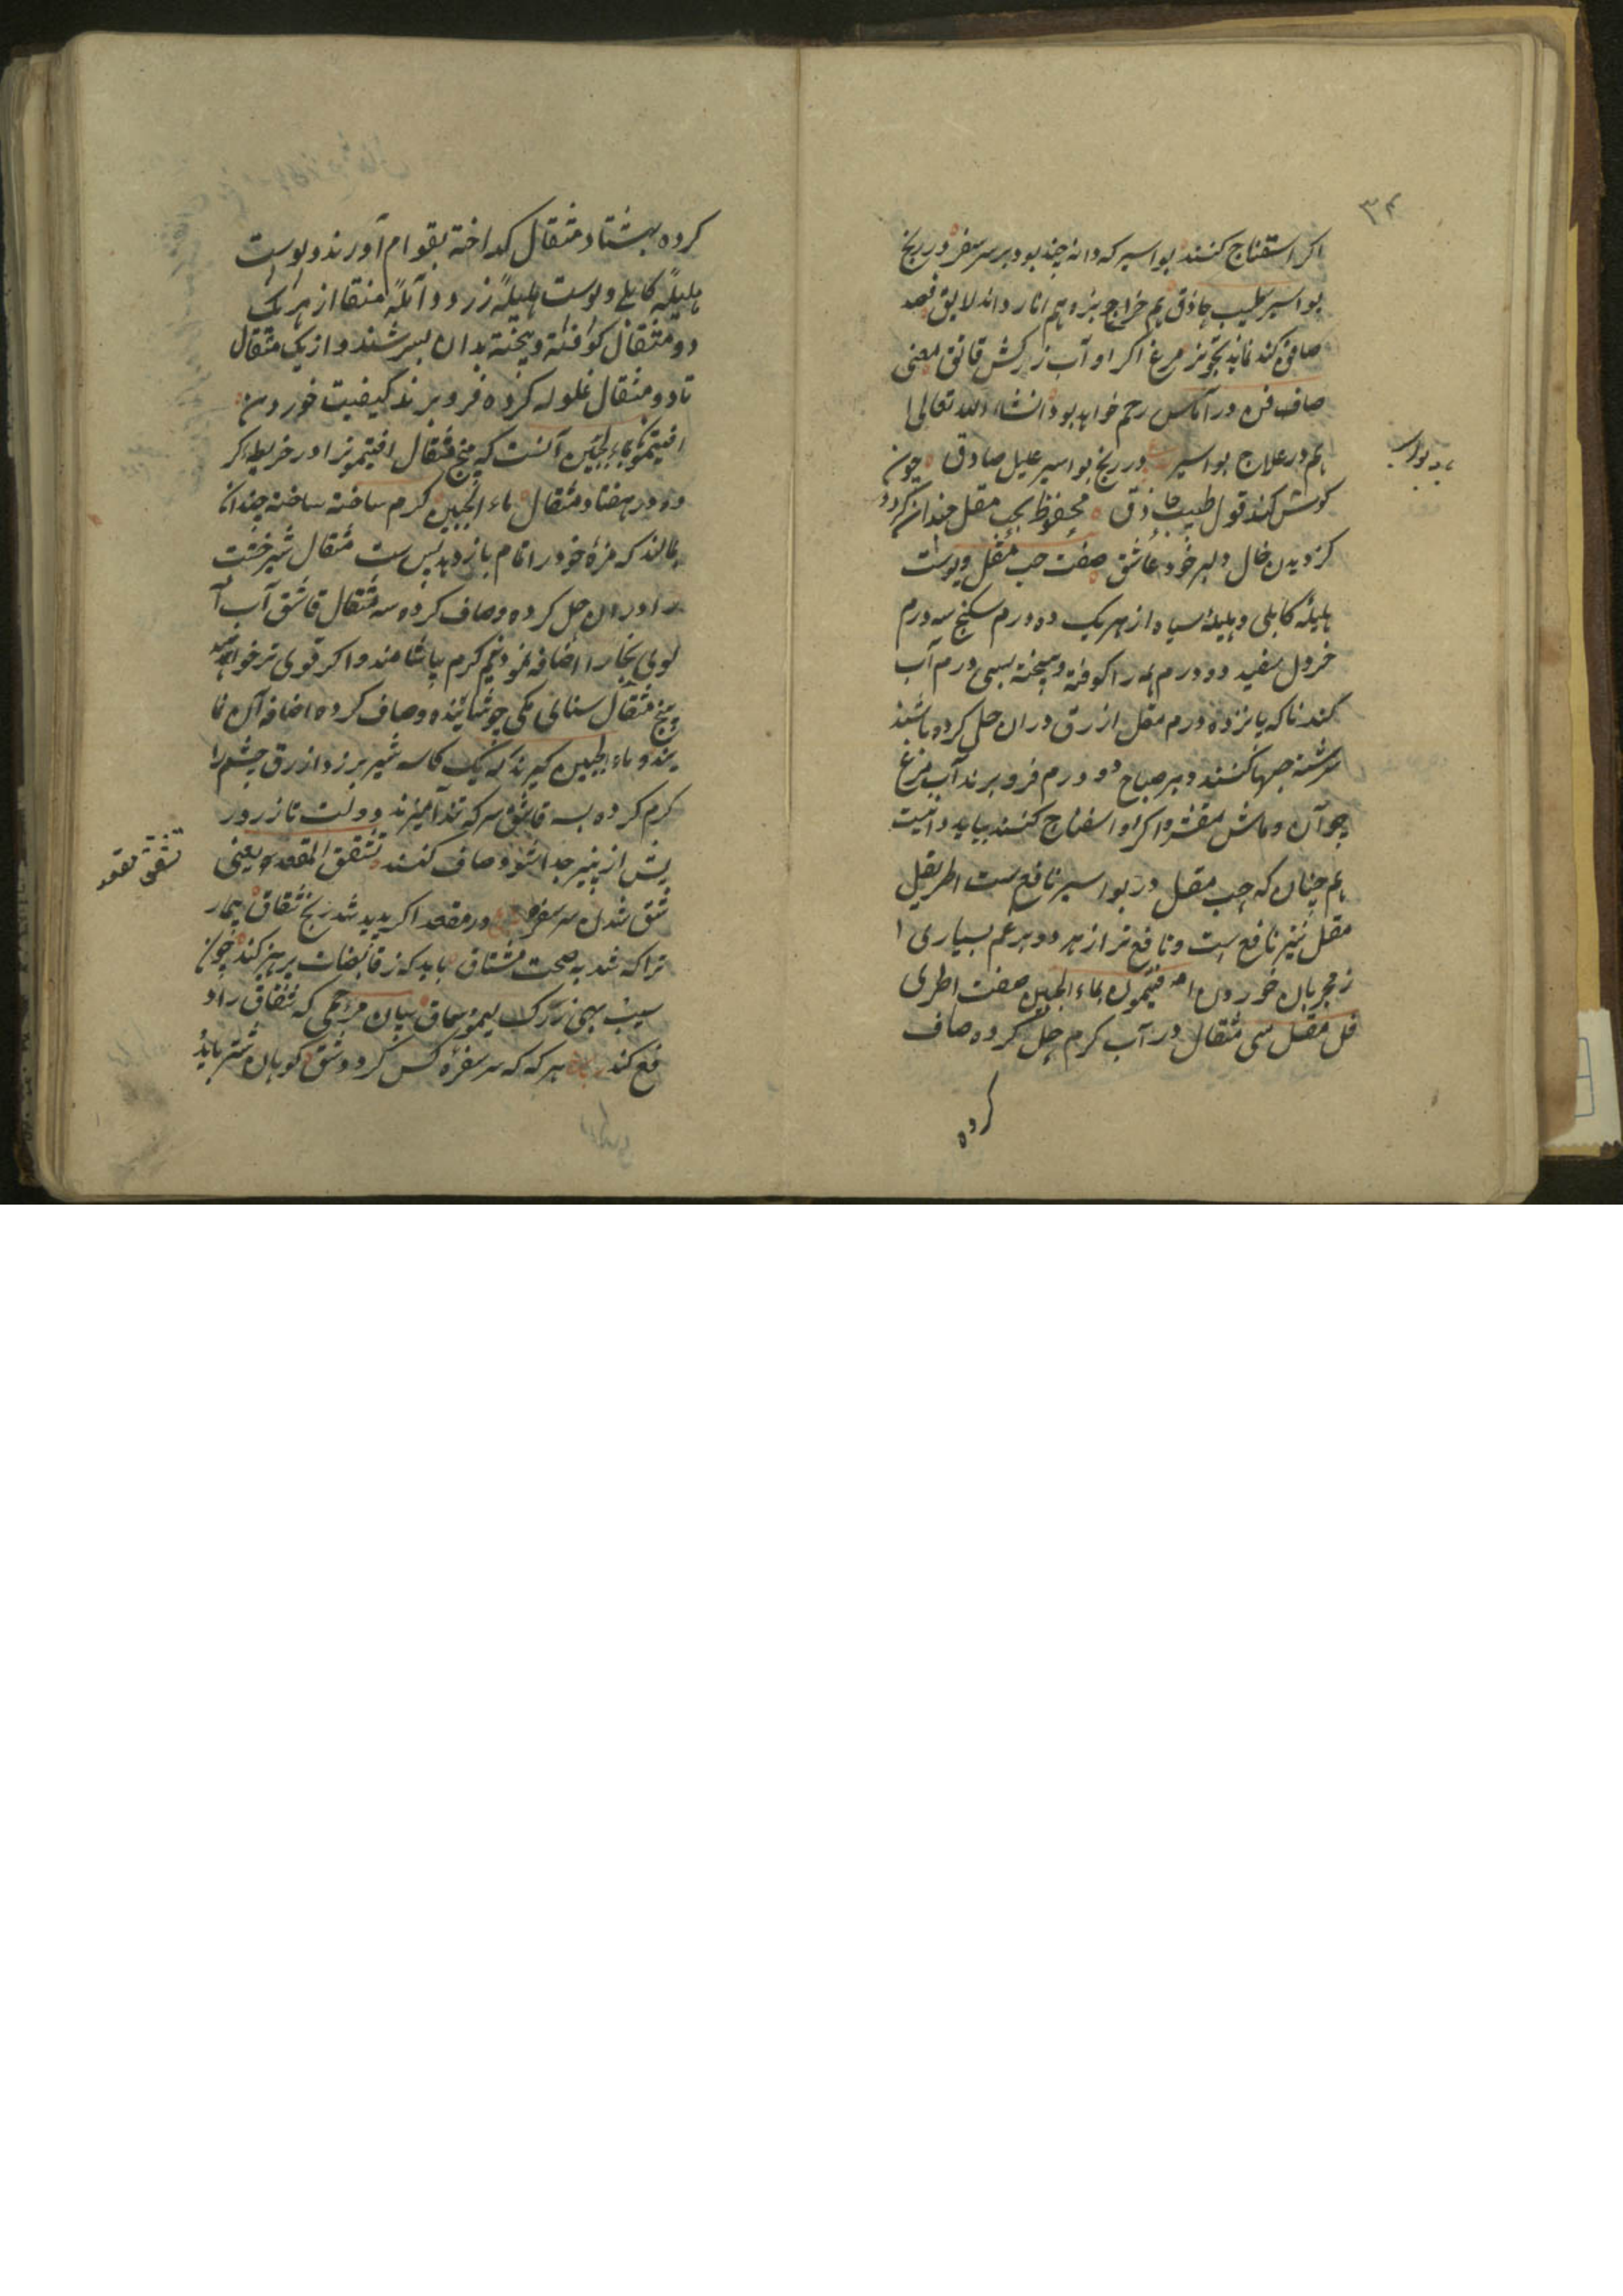 ۳۴
اکر استفناج کنند بواسیر که دانه چند بود بر سر سفره در رنج
بواسیر طبیب حاذق هم خراج بزه هم انار داند لایق فصد
صافن کند نماید تجویز مرغ اکر او آب زرکش فائق معنی
صاف فن درآنکس رحم خواهد بود انشاء الله تعالی
هم در علاج بواسیر در رنج بواسیر علیل صادق چون
بواسیر
کوش کند قول طبیب حاذق محفوظ بحب مقل چندان کردد
کز دیدن خال دلبر خود عاشق صفت حب مقل پوست
هلیله کابلی و هلیله سیاه از هر یک ده درم سکنج سه درم
خردل سفید دو درم همه را کوفته و بیخته بسی درم آب
کندنا که پانزده درم مقل ازرق در ان حل کرده باشند
سرشته حبها کنند و هر صباح دو درم فرو برند آب مرغ
چو آن و ماش مقشر واکر او اسفناج کنند بیاید دانست
هم چنان که حب مقل در بواسیر نافع است اطریفل
مقل نیز نافع است و نافع تر از هر دو بزعم بسیاری ا
ز مجربان خوردن افتیمون بماء الجبن صفت اطری
فل مقل سی مثقال در آب کرم حل کرده صاف
کرده
کرده بهشتاد مثقال کداخته بقوام آورند و پوست
هلیله کابلی و پوست هلیله زرد و آمله منقا از هر یک
دو مثقال کوفته و بیخته بدان بسرشند و از یک مثقال
تا دو مثقال غلوله کرده فرو برند کیفیت خوردن
افتیمون بماء الجبن آنست که پنج مثقال افتیمونرا در خریطه کر
ده در هفتاد مثقال ماء الجبن کرم ساخته ساخته چندان
بمالند که مزه خود را تمام باز دهد پس بیست مثقال شیر خشت
را در ان حل کرده و صاف کرده سه مثقال قاشق آب آ
لوی بخارا اضافه نموده نیم کرم بیاشامند و اکر قوی تر خواهند
پنج مثقال سنای مکی جوشانیده و صاف کرده اضافه آن نما
یند و ماء الجبن کیرند که یک کاسه شیر بز زرد ازرق چشم را
کرم کرده سه قاشق سرکه تند آمیزند و دولت تا زرد
پش از پنیر جدا شود صاف کنند تشقق المقعده یعنی
تشقق مقعد
شق شدن سر سفره در مقعد اکر پدید شد رنج شقاق بیمار
ترا که شد به صحت مشتاق باید که ز قابضات پرهیز کند چون
سیب بهی زرک لیمو سماق بیان مرهمی که شقاق را د
فع کند هر که که سر سفره کس کردد شق کوهان شتر باید